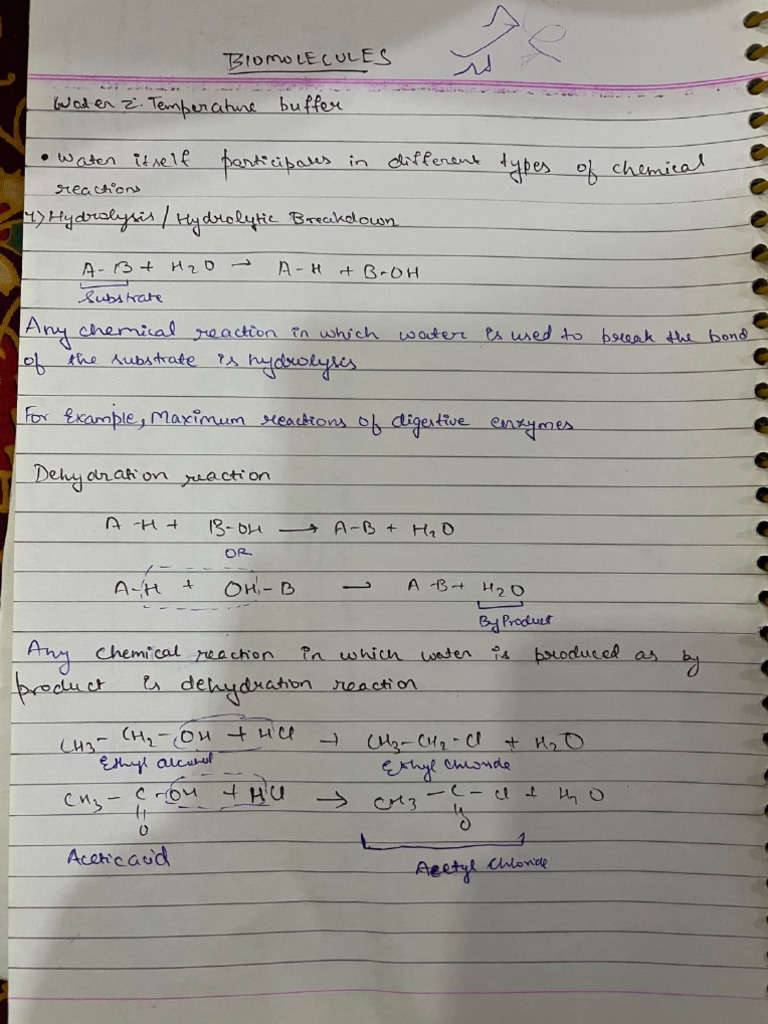 BIOMOLECULES
Water :- Temperature buffer
• Water itself participates in different types of chemical
reactions
1) Hydrolysis / Hydrolytic Breakdown
A-B + H2O → A-H + B-OH
Substrate
Any chemical reaction in which water is used to break the bond
of the substrate is hydrolysis
For Example, Maximum reactions of digestive enzymes
Dehydration reaction
A-H + B-OH → A-B + H2O
OR
A-H + OH-B → A-B + H2O
By Product
Any chemical reaction in which water is produced as by
product is dehydration reaction
CH3-CH2-OH + HCl → CH3-CH2-Cl + H2O
Ethyl alcohol Ethyl chloride
CH3-C-OH + HCl → CH3-C-Cl + H2O
O O
Acetic acid Acetyl chloride